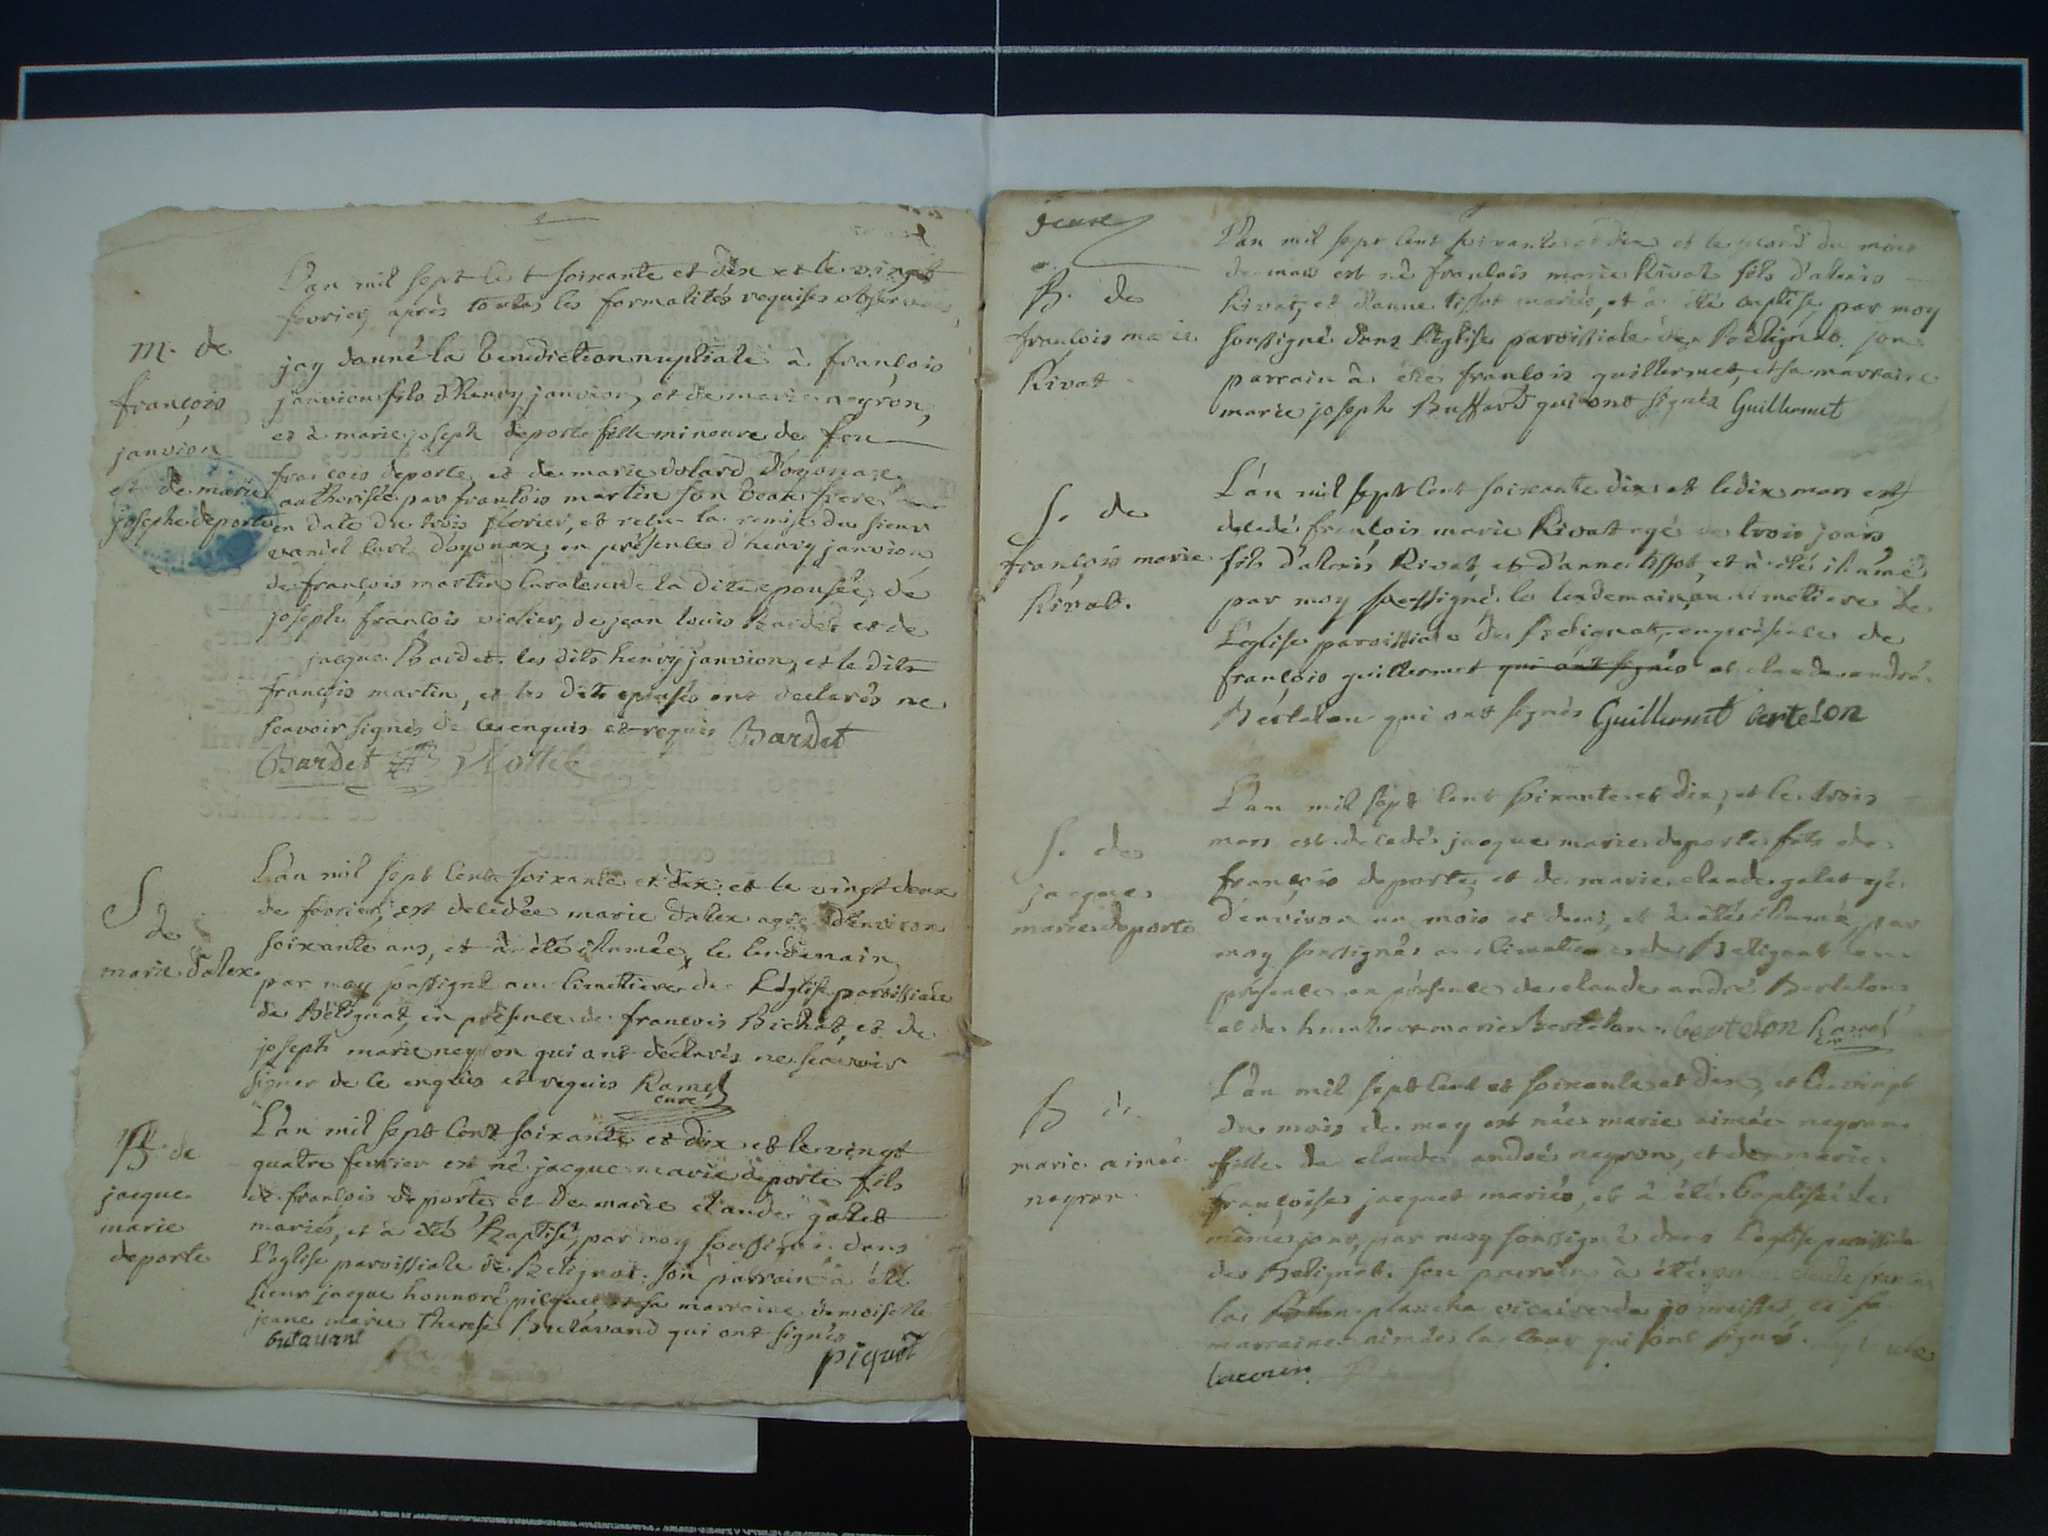 L'an mil sept cent soixante et dix et le vingt
fevrier, après toutes les formalités requises observées,
m. de
françois
janvion
et de marie
josephe deporte
jay donné la benediction nuptiale à françois
janvion fils d'henry janvion, et de marie neyron,
et à marie joseph deporte fille mineure de feu
françois deporte, et de marie volard d'oyonax,
authorisée par françois martin son beau frere
en date du trois fevrier, et relue la remise du sieur
curé d'oyonax, en présence d'henry janvion,
de françois martin curateur de la dite epousée, de
joseph françois violier, de jean louis Bardet et de
jacque Bardet. les dits henry janvion, et le dit
françois martin, et les dits epousés ont declarés ne
scavoir signés de ce enquis et requis Bardet
Bardet
S
de
marie dalex
L'an mil sept cent soixante et dix et le vingt deux
de fevrier, est decedée marie dalex agée d'environ
soixante ans, et à été inhumée, le lendemain,
par moy soussigné au cimetiere de L'église paroissiale
de Bélignat, en présence de françois Bichat, et de
joseph marie neyron qui ont déclarés ne scavoir
signer de ce enquis et requis Ramel
curé
B. de
jacque
marie
deporte
L'an mil sept cent soixante et dix et le vingt
quatre fevrier est né jacque marie deporte fils
de françois deporte, et de marie claude galet
mariés, et à été Baptisé, par moy soussigné dans
L'eglise paroissiale de Belignat. son parrain à été
sieur jacque honnoré picquet et sa marraine demoiselle
jeane marie therese Butavand qui ont signés
butavant
piquet
deux
B. de
françois marie
Rivat
L'an mil sept cent soixante et dix et le du mois
de mars est né françois marie Rivat fils d'alexis
Rivat, et d'anne tissot mariés, et à été baptisé, par moy
soussigné dans l'église paroissiale de Belignat. son
parrain à été françois guillermet, et sa marraine
marie joseph Buffard qui ont signés Guillermet
S. de
françois marie
Rivat.
L'an mil sept cent soixante dix et le dix mars est
decedé françois marie Rivat agé de trois jours,
fils d'alexis Rivat, et d'anne tissot, et à été inhumé
par moy soussigné le lendemain, au cimetiere de
L'église paroissiale de Belignat, en présence de
françois guillermet qui ont signés et claude andré
Bertelon qui ont signés Guillermet bertelon
S. de
jacque
marie deporte
L'an mil sept cent soixante et dix, et le trois
mars est decedé jacque marie deporte fils de
françois deporte, et de marie claude galet agé
d'environ un mois et demi, et à été inhumé par
moy soussigné au cimetiere de Belignat en
présence en présence de claude andré Bertelon
et de humbert marie Bertelon. bertelon Ramel
B de
marie aimée
neyron
L'an mil sept cent et soixante et dix, et le vingt
du mois de may est née marie aimée neyron
fille de claude andré neyron, et de marie
françoise jacquet mariés, et à été baptisée le
même jour, par moy soussigné dans l'eglise paroissiale
de Belignat. son parrain à été claude
la planche vicaire de et sa
marraine aimée la cour qui ont signé.
lacour